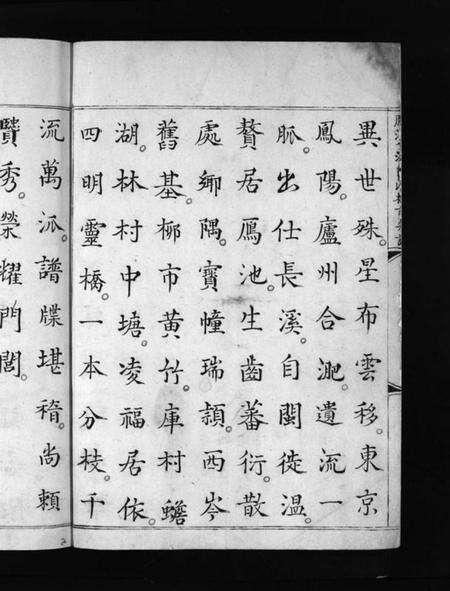 異世殊。星布雲移。東京
鳳陽。廬州合淝。遺流一
脈。出仕長溪。自閩徙溫。
贅居鴈池。生齒蕃衍。散
處鄉隅。寶幢瑞頴。西岑
舊基。柳市黃竹。庫村蟾
湖。林村中塘。凌福居依。
四明靈橋。一本分枝。千
流萬派。譜牒堪稽。尚賴
賢秀。榮耀門閭。